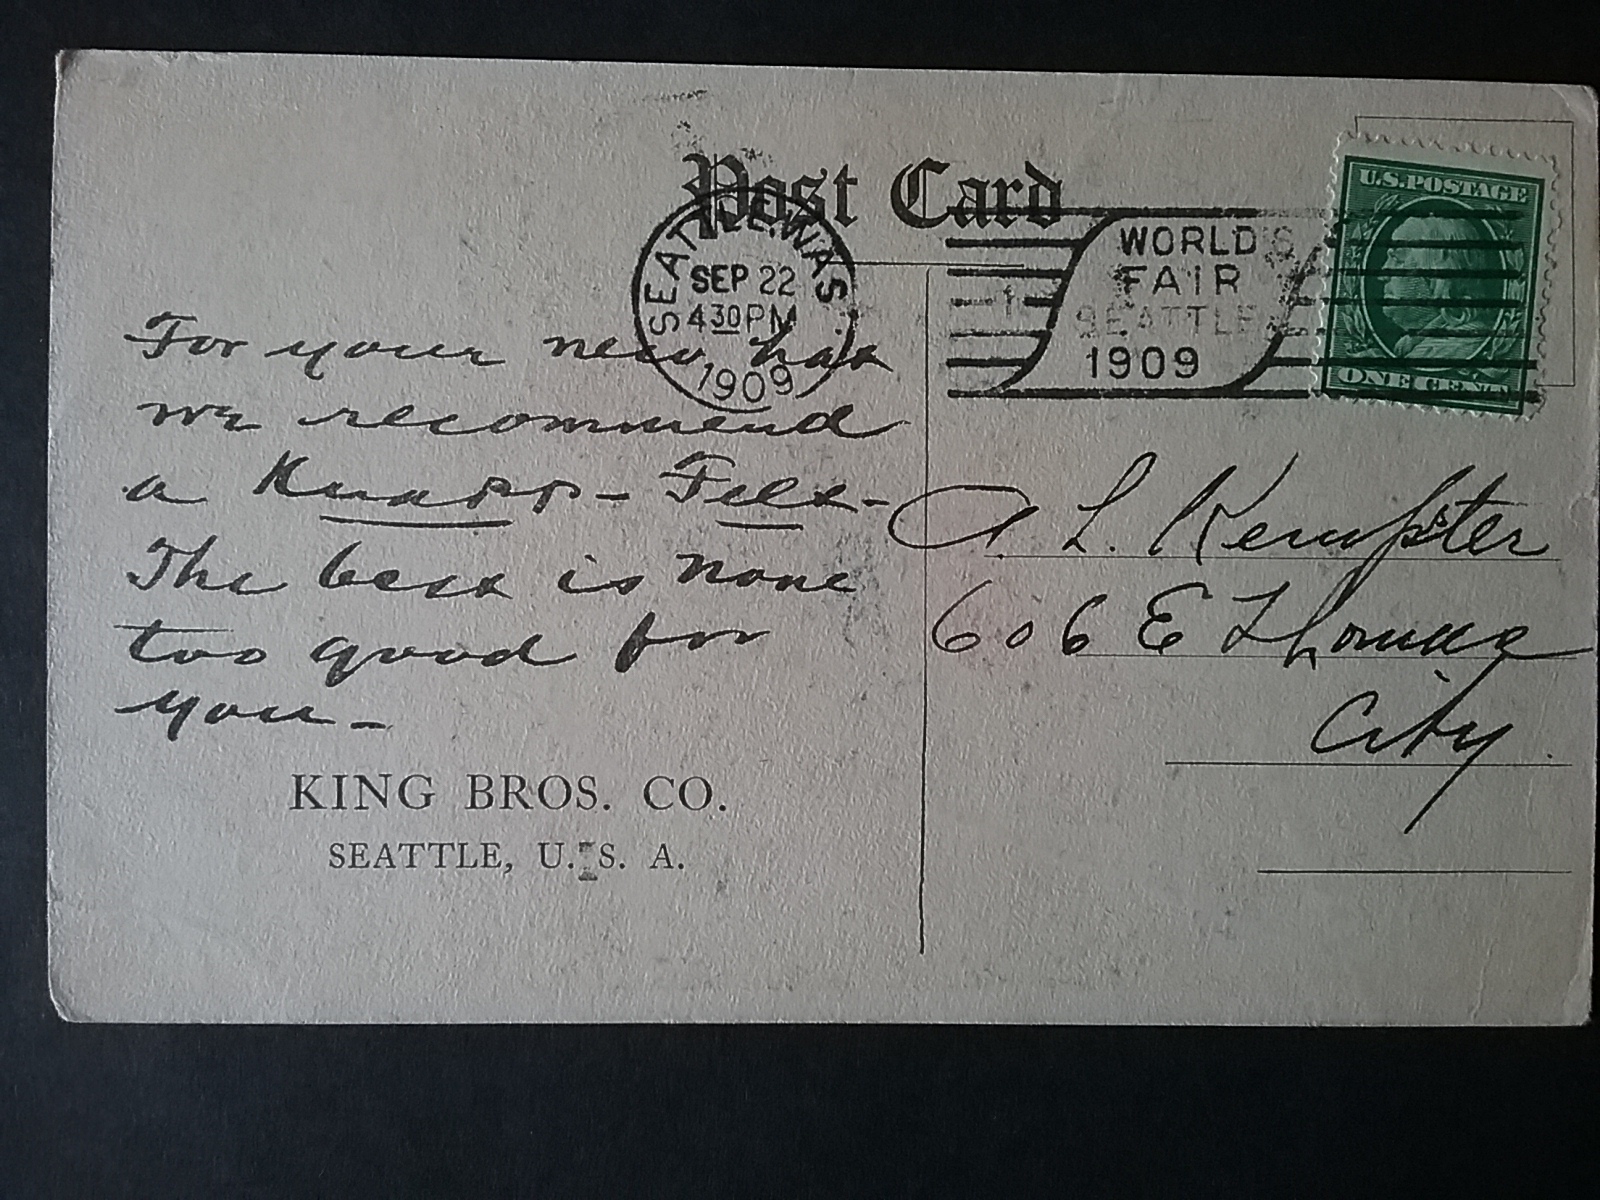 Post Card
SEATTLE, WASH.
SEP 22
4 30 PM
1909
WORLD'S
FAIR
SEATTLE
1909
U.S. POSTAGE
ONE CENT
For your new hat
we recommend
a Knapp - Felt -
The best is none
too good for
you -
KING BROS. CO.
SEATTLE, U. S. A.
A. L. Kempster
606 E Thomas
City